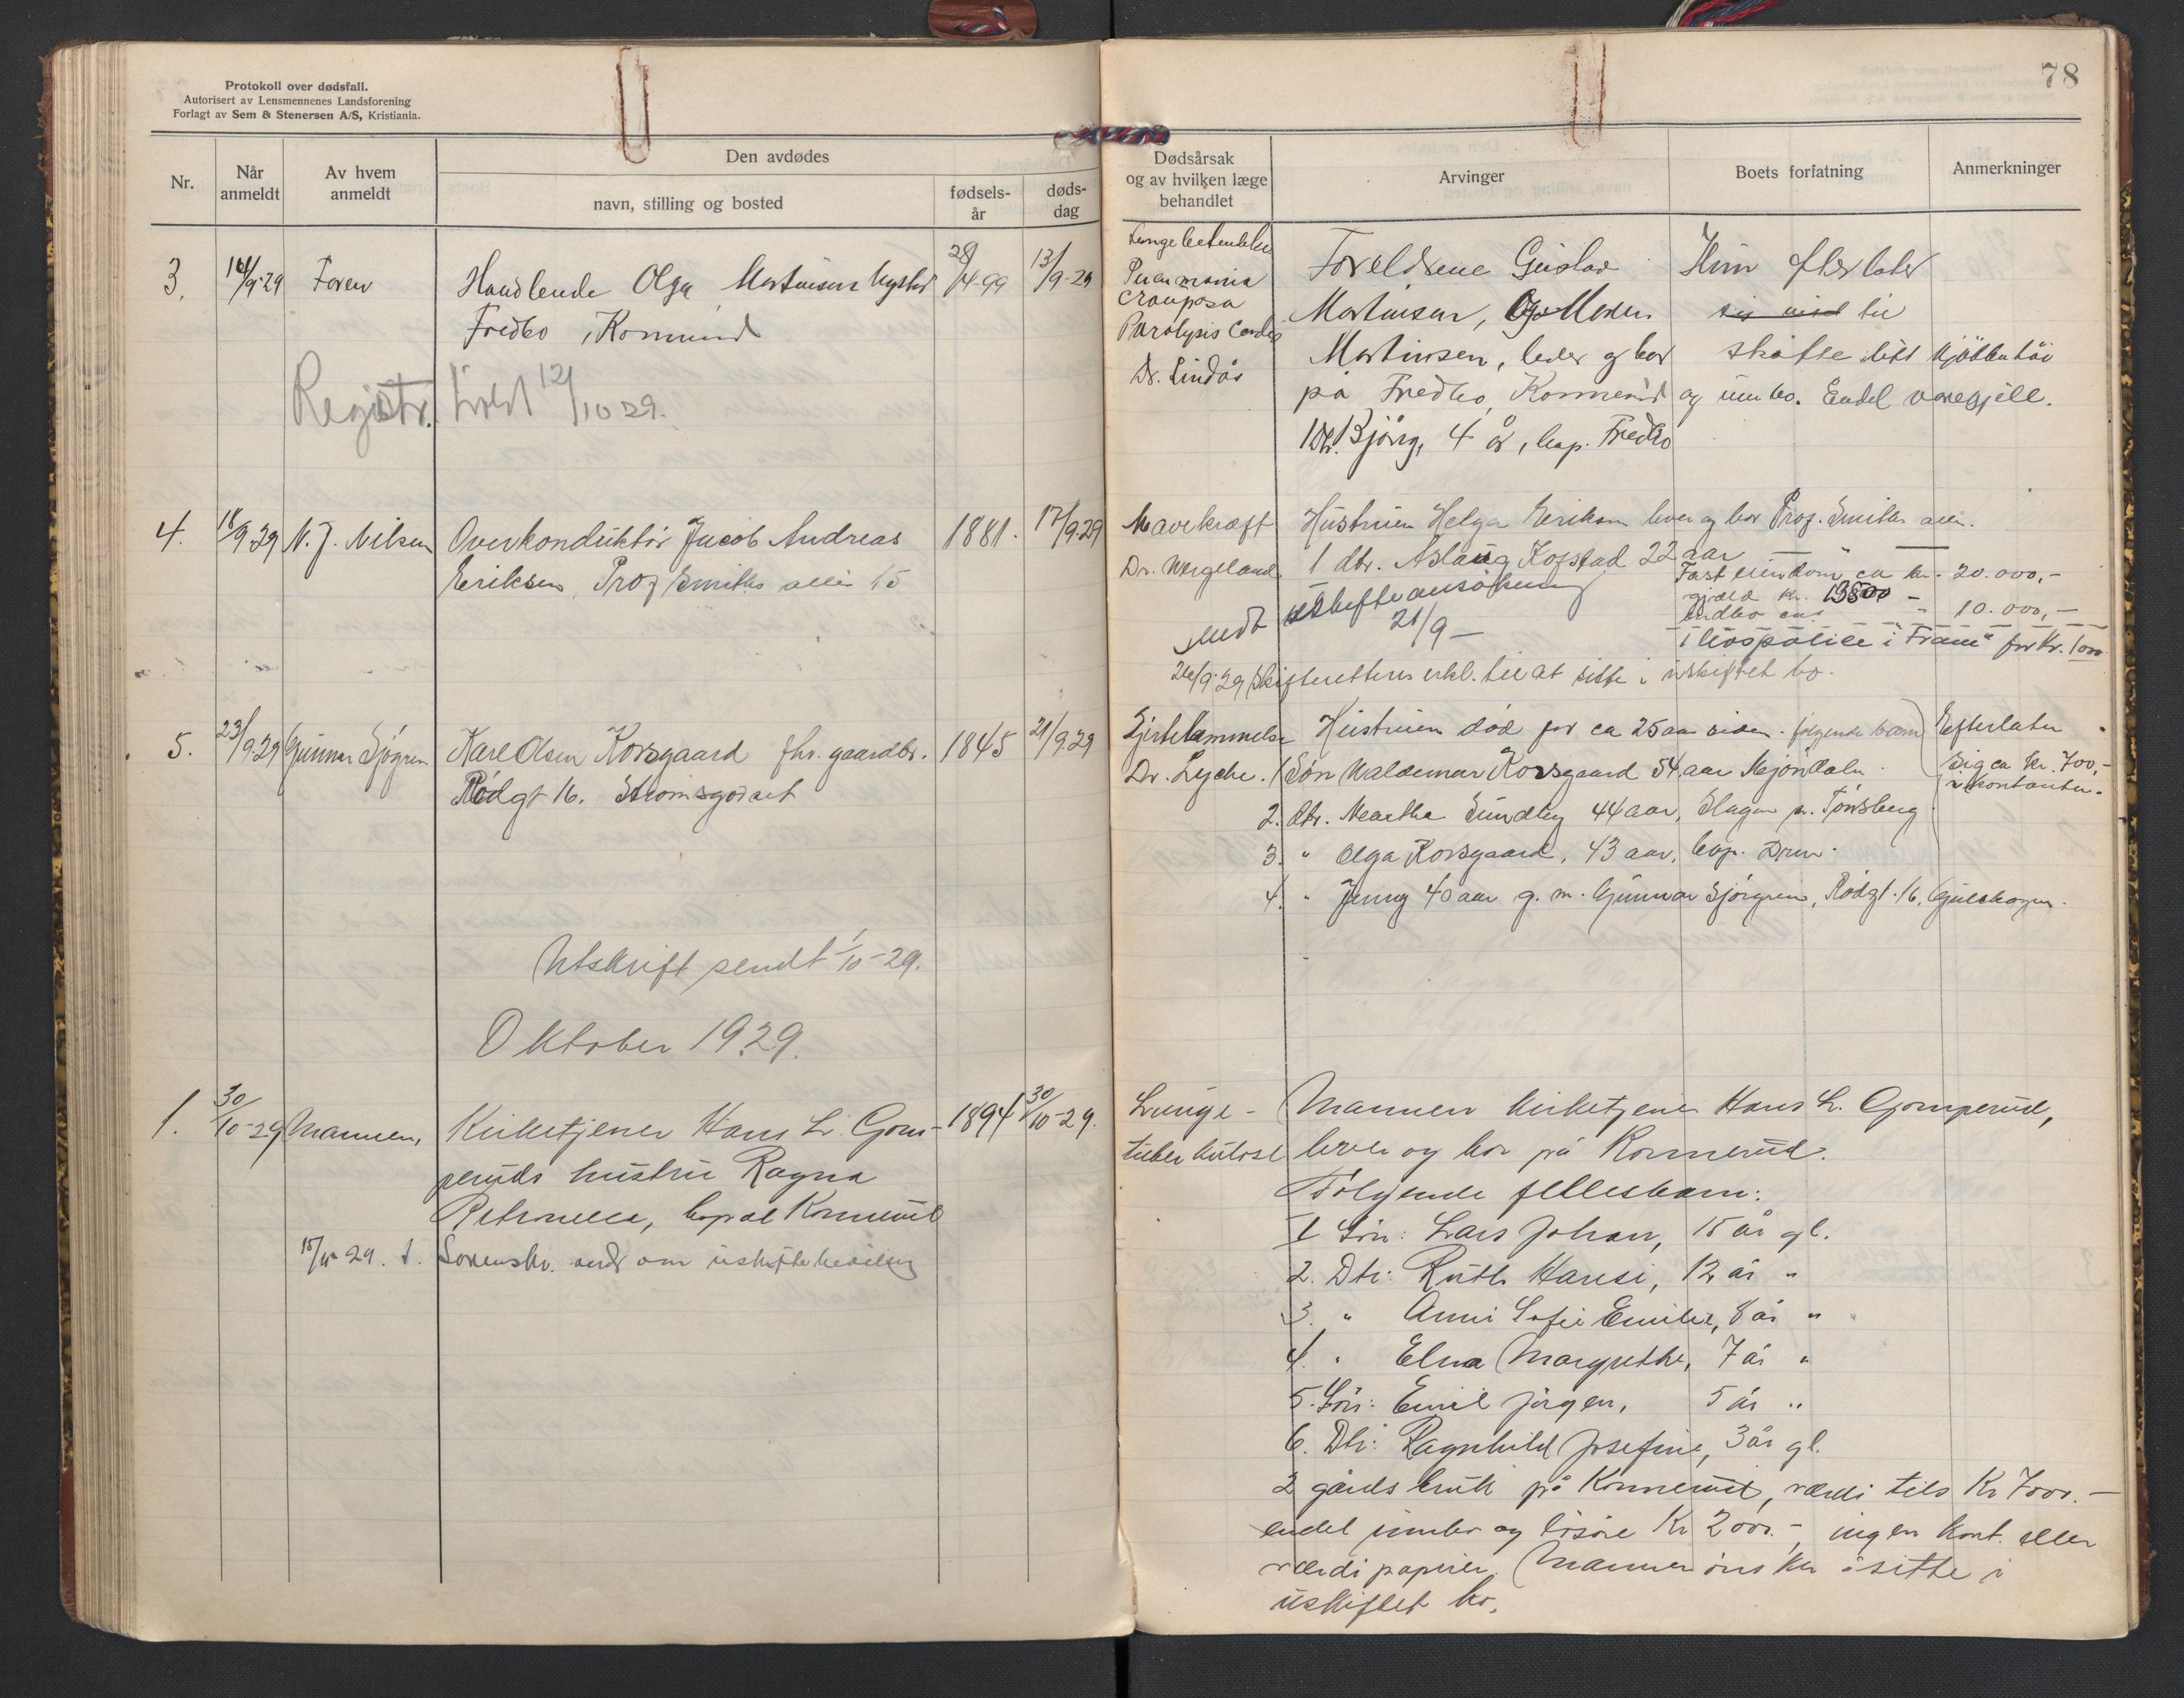 Protokoll over dødsfall.
Autorisert av Lensmennenes Landsforening
Forlagt av Sem & Stenersen A/S, Kristiania.
Nr.
Når anmeldt
Av hvem anmeldt
Den avdødes
navn, stilling og bosted
fødsels-år
døds-dag
3. 14/9-29 Faren Handlende Olga Martinsen Nystad 28/4-99 13/9-29
Fredbo, Konnerud
Registr. holdt 12/10 29.
4. 18/9 29 N. J. Nilsen Overkonduktør Jacob Andreas 1881. 17/9-29
Eriksen, Prof Smiths alle 15
5. 23/9.29 Gunnar Sjøgren Karl Olsen Korsgaard fhv. gaardbr. 1845 21/9.29
Rødgt 16. Strømsgodset
Utskrift sendt 1/10-29.
Oktober 1929.
1. 30/10-29 Mannen, Kirketjener Hans L. Gom- 1894 30/10-29.
peruds hustru Ragna
Petronella, bopæl Konnerud
15/11-29. t. Sorenskr. sendt om uskiftebevilling
78
Dødsårsak
og av hvilken læge
behandlet
Arvinger
Boets forfatning
Anmerkninger
Lungebetendelse
Pneumonia
crouposa
Paralysis Cordis
Dr. Lindås
Foreldrene Gustav Hun efterlater
Martinsen, Og Maren sig intet til
Martinsen, lever og bor skifte litt kjøkkentøi
på Fredbo, Konnerud og innbo. Endel varegjell.
1 Dtr. Bjørg, 4 år, bop. Fredbo
Mavekræft Hustruen Helga Eriksen lever og bor Prof. Smiths alle.
Dr. Wergeland 1 dtr. Aslaug Kopstad 22 aar
Fast eiendom ca kr. 20.000,-
gjæld kr. 13500 -
Indbo ca. " 10.000,-
sendt uskifteansøkning
21/9 -
1 livspolice i "Fram" for Kr. 1000
26/9-29 Skifterettens erkl. til at sitte i uskiftet bo.
Hjertelammelse Hustruen død for ca 25 aar siden. følgende barn Efterlater
Dr. Lyche. 1 Søn Waldemar Korsgaard 54 aar Mjøndalen. sig ca kr. 700,-
i kontanter.
2. dtr. Martha Sundby 44 aar, Slagen pr. Tønsberg
3. " Olga Korsgaard, 43 aar, bop. Drm.
4. " Jenny 40 aar g. m. Gunnar Sjøgren, Rødgt. 16, Gulskogen.
Lunge- Mannen kirketjener Hans L. Gomperud,
tuberkulose lever og bor på Konnerud.
Følgende fellesbarn:
1 Søn: Lars Johan, 15 år gl.
2. Dtr: Ruth Hansi, 12 år "
3. " Anni Sofie Emilie, 8 år "
4. " Elna Margrethe, 7 år "
5. Søn: Emil Jørgen, 5 år "
6. Dtr: Ragnhild Josefine, 3 år gl.
2 gårdsbruk på Konnerud, verdi tils Kr 7000.-
endel innbo og løsøre Kr 2000.-, ingen kont. eller
verdipapirer. Mannen ønsker å sitte i
uskiftet bo.